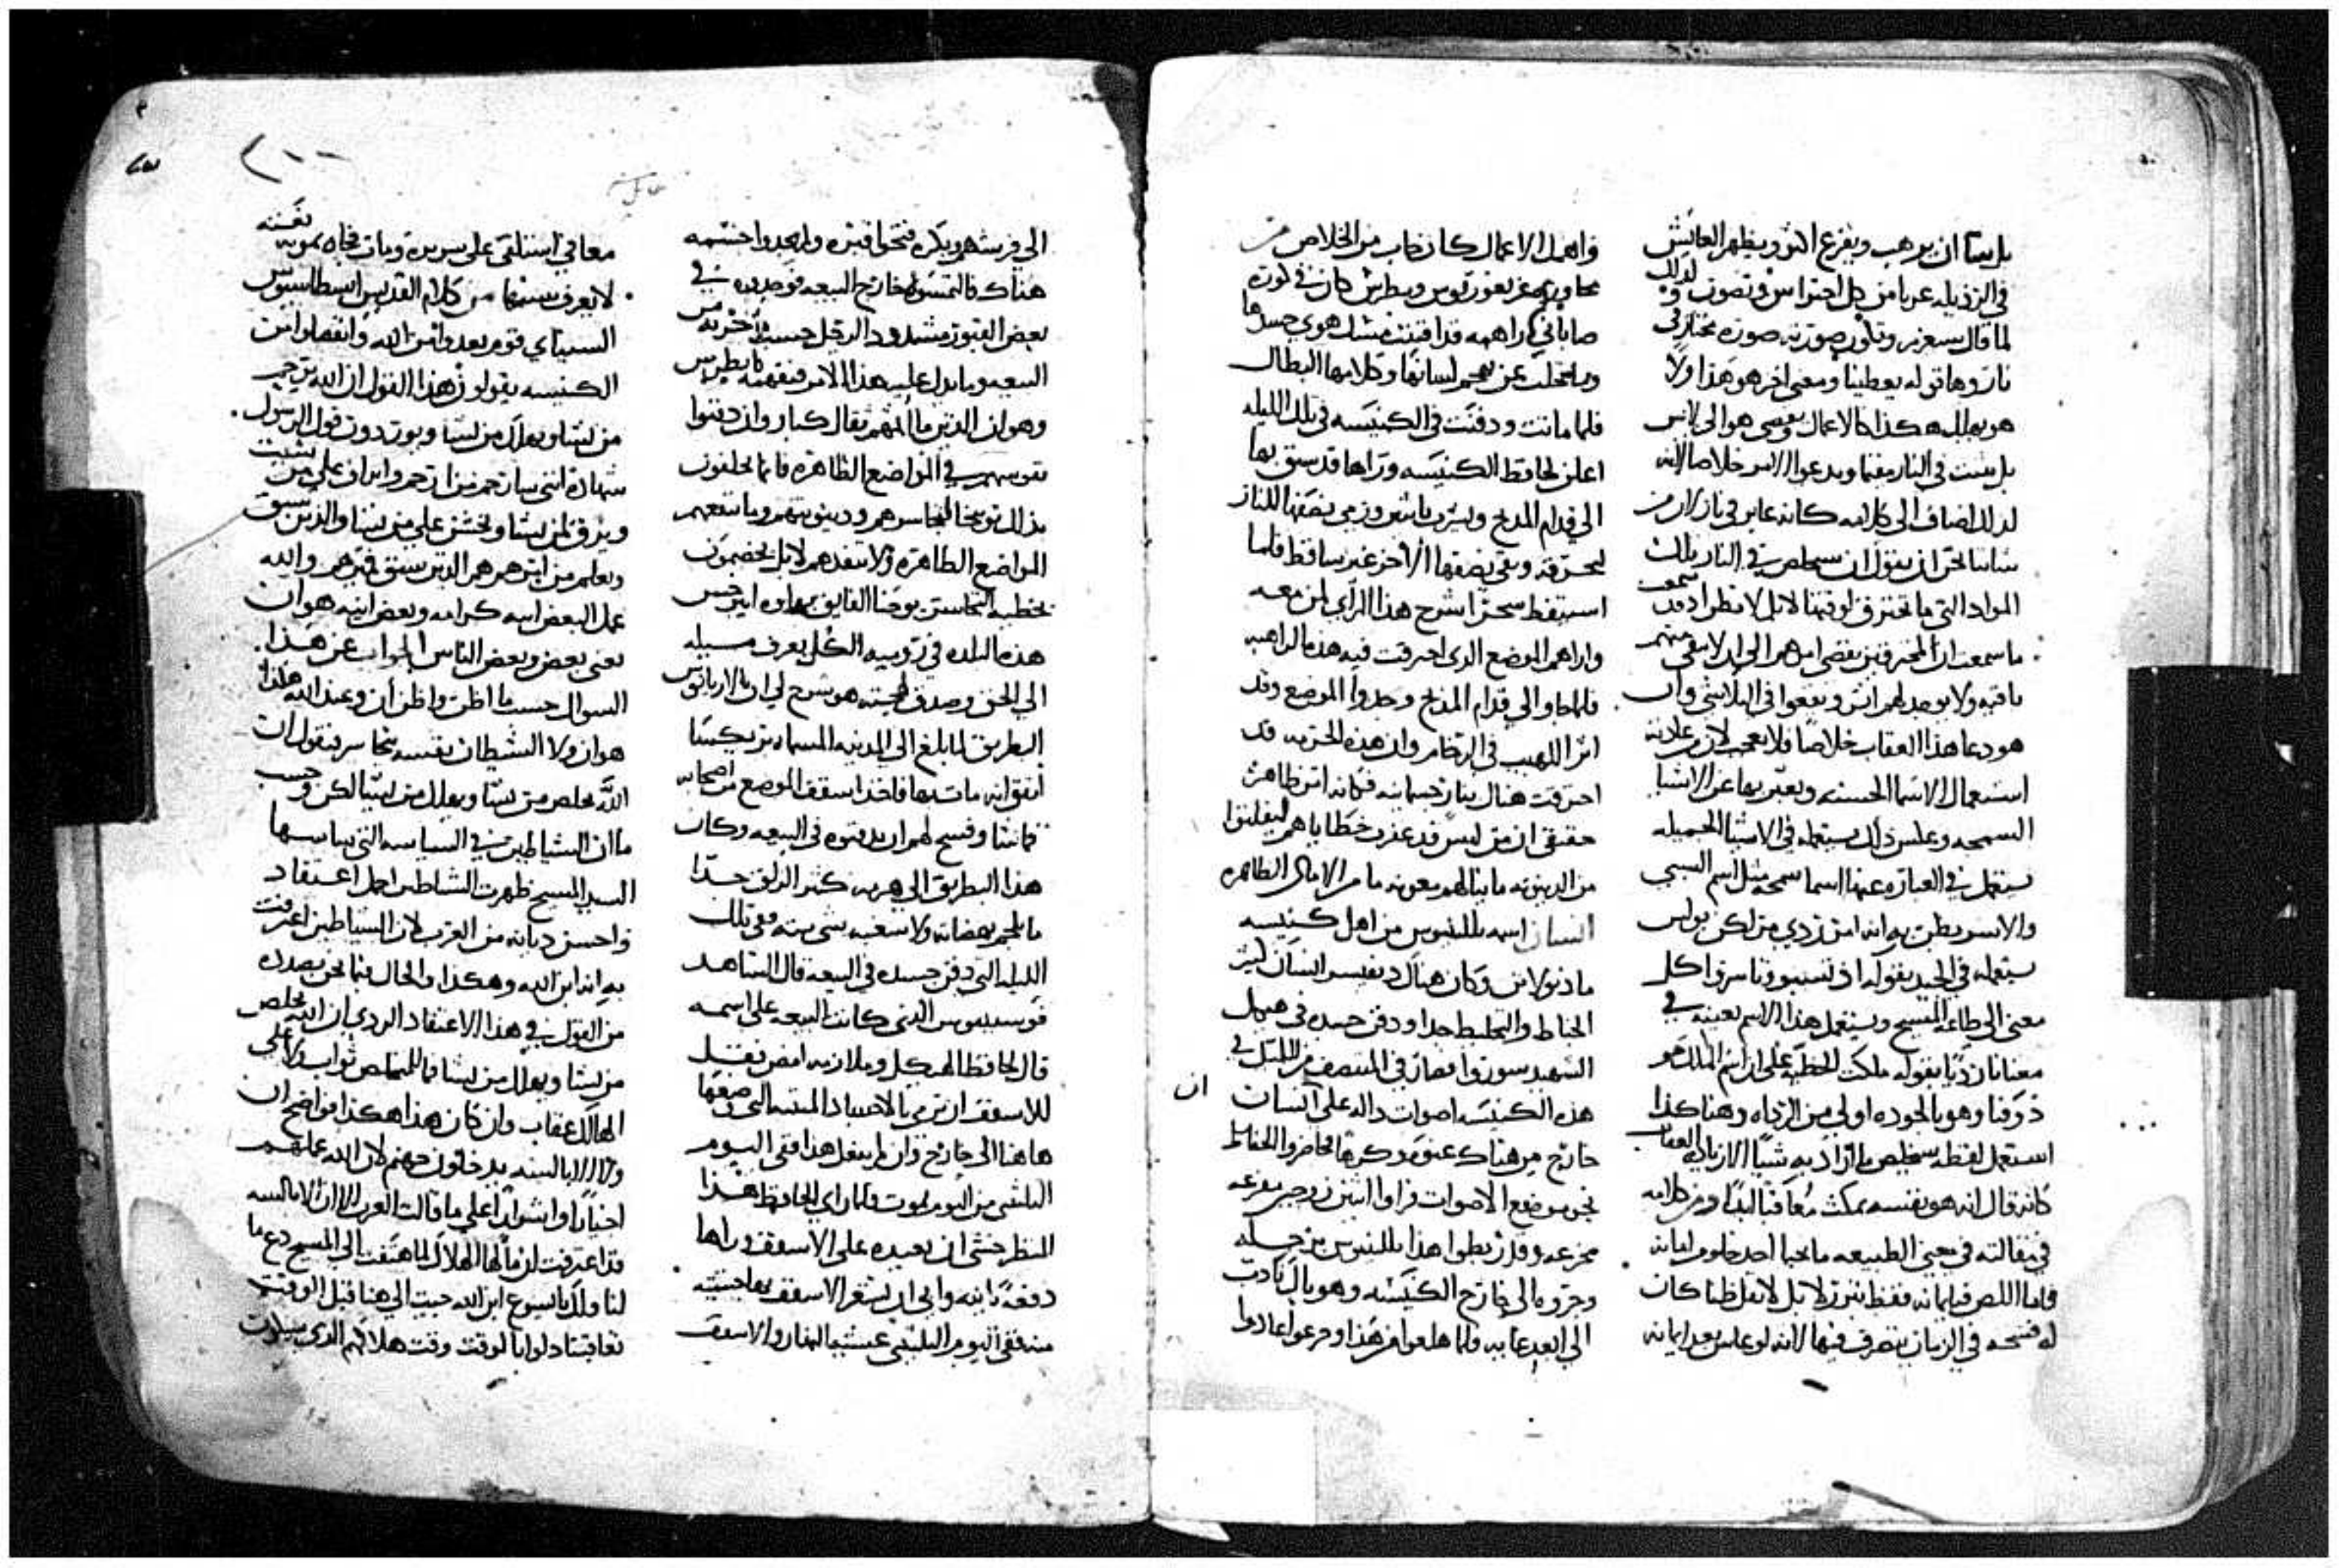 بل يشا ان يرهب ويفزع الذي ويظهر العايش
في الرذيله عريا من كل احتراس وتصون لذلك
لما قال سيغرم وتكون صورته صورة مختار في
نار وها قوله يعطينا ومعنى اخر هو هذا ولا
هو يهلك هكذا كالاعمال ويمضي هو الى لايس
بل يثبت في النار مقيما ويدعوا الامر خلاصا لانه
لذلك اضاف الى كلامه كانه عابر في نار لان من
شاننا نحن ان نقول ان سيخلص في النار تلك
المواد التي ما تحترق لوقتها لانك لا تنظر اذ قد سمعت
ما سمعت ان المحترقين يمضي امرهم الى ان لا يبقى منهم
باقيه ولا يوجد لهم اثر ويقعوا في التلاشي وان
هو دعا هذا العقاب خلاصا فلا تعجب لان من عادته
استعمال الاسما الحسنه ويعبر بها عن الاشيا
السمجه وعكس ذلك يستعمله في الاشيا الجميله
يستعمل في العباره عنها اسما سمجه مثل اسم السبي
والاسر يظن به انه امر ردي لكن بولس
يستعمله في الجيد بقوله اذ نسبي ونأسر كل
معنى الى طاعة المسيح ويستعمل هذا الاسم بعينه في
معنا ردي بقوله ملكت الخطيه على ان اسم الملك هو
ذوقنا وهو بالجوده اولى من الرداه وهنا هكذا
استعمل لفظه سيخلص ما اراد به شيا الا زيادة العقاب
كانه قال انه هو بنفسه يمكث معاقبا ابدا ومن كلامه
في مقالته في معنى الطبيعه ما نجا احد خلو من امانه
فاما اللص فبايمانه فقط تبرر لا بل لا تقل ظنا كان
له فسحه في الزمان يتصرف فيها لانه لو عاش بعد ايمانه
واهمل الاعمال كان خاب من الخلاص من
محاورة بطرس كان في كورة
صاباني راهبه قد اقتنت نسك هوى جسدها
وما تخلت عن تهجم لسانها وكلامها البطال
فلما ماتت ودفنت في الكنيسه في تلك الليله
اعلن لحافظ الكنيسه وراها قد سيق بها
الى قدام المذبح ونشرت باثنين ورمي نصفها للنار
ليحرقه وبقي نصفها الاخر غير ساقط فلما
استيقظ سحرا شرح هذا الراي لمن معه
واراهم الموضع الذي احرقت فيه هذه الراهبه
فلما جاوا الى قدام المذبح وجدوا الموضع وقد
اثر اللهيب في الرخام وان هذه الحرمه قد
احرقت هناك بنار جسمانيه فكانه امر ظاهر
حقيقي ان من ليس قد غفرت خطاياهم ليفلتوا
من الدينونه ما ينالهم معونه ما من الاماكن الطاهره
انسان اسمه بللنتيوس من اهل كنيسه
مادنولانس وكان هناك رييس انسان كثير
الخباط والتخليط جدا ودفن جسده في هيكل
الشهيد سورس فصار في المنتصف من الليل في
هذه الكنيسه اصوات داله على انسان
خارج من هناك عنوة وكرها فحاضروا الحفاظ
نحو موضع الاصوات فراوا اثنين روحين مفزعه
مخزعه وقد ربطوا هذا بللنتيوس من رجله
وجروه الى خارج الكنيسه وهو بالكاد
الى البعد غايه فلما هلعوا من هذا ورجعوا عادوا
ان
الى فرشهم وبكره فتحوا قبره ولم يجدوا جسمه
هناك فالتمسوه خارج البيعه فوجدوه في
بعض القبور مشدود الرجل حسب ما اخرج من
البيعه وما يدل عليه هذا الامر فتفهمه يا بطرس
وهو ان الذين مااثمهم ثقال كبار وان دفنوا
نفوسهم في المواضع الطاهره فانما يخلفون
بذلك توبيخا لتجاسرهم ودينونتهم وما تنفعهم
المواضع الطاهره ولا تنقذهم لا بل يخصمون
بخطية التجاسر يوحنا الفايق بهاوه ايبرخس
هذه البلده في روميه الكل يعرف مسيله
الى الحق وصدق لهجته هو شرح لي ان
البطريق لما بلغ الى المدينه المسماه بريكسيا
اتفق انه مات بها فاخذ اسقف الموضع من اصحابه
ما شا وفسح لهم ان يدفنوه في البيعه وكان
هذا البطريق الى هرمه كثير الزلق جدا
ما يلجم بهضاته ولا شغبه بشي بته وفي تلك
الليله التي دفن جسده في البيعه قال الشاهد
فوستينوس الذي كانت البيعه على اسمه
قال لحافظ الهيكل وملازمه امض فقل
للاسقف ان يرمي بالاجساد المنتنه التي وضعها
هاهنا الى خارج وان لم يفعل هذا ففي اليوم
الثلثين من اليوم يموت فلما راى الحافظ هذا
المنظر خشي ان يعيده على الاسقف وراها
دفعة ثانيه وابى ان يشعر الاسقف بما خشيه
منه ففي اليوم الثلثين عشية النهار والاسقف
٢٠٠
معافى استلقى على سريره ومات فجاه بموته بغتته
لا يعرف سببها من كلام القديس انسطاسيوس
السينايي قوم بعدوا من الله وانفصلوا من
الكنيسه يقولون هذا القول ان الله يرحم
من يشا ويهلك من يشا ويوردون قول الرسول
شهاده انني سارحم من ارحم واتراف على من
ويرق لمن يشا ويخشن على من يشا والذين سبق
وعلم من اين هم هم الذين سبق فميزهم والله
عمل البعض انيه كرامه وبعض انيه هوان
يعني بعض وبعض الناس الجواب عن هذا
السوال حسب ما اظن واظن ان وعند الله هكذا
هو ان ولا الشيطان نفسه يتجاسر فيقول ان
الله يخلص من يشا ويهلك من يشا لكن وحسب
ما ان الشياطين في السياسه التي ساسها
السيد المسيح ظهرت الشياطين اجمل اعتقاد
واحسن ديانه من العرب لان الشياطين اعترفت
به انه ابن الله وهكذا والحال فيما نحن بصدده
من القول في هذا الاعتقاد الردي ان الله يخلص
من يشا ويهلك من يشا فما للمخلص ثواب ولا على
الهالك عقاب وان كان هذا هكذا فواضح ان
ولا الابالسه يدخلون جهنم لان الله عملهم
اخيارا او اشرارا على ما قالت العرب الا ان الابالسه
قد اعترفت ان مالها الهلاك لما هتفت الى المسيح دع ما
لنا ولك يا يسوع ابن الله جيت الى هنا قبل الوقت
تعاقبنا دلوا بالوقت وقت هلاكهم الذي سيدركهم